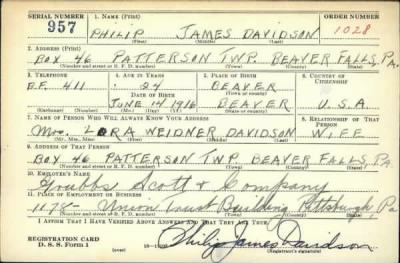 SERIAL NUMBER 1. NAME (Print) ORDER NUMBER
957 PHILIP JAMES DAVIDSON 1028
(First) (Middle) (Last)
2. ADDRESS (Print)
BOX 46 PATTERSON TWP. BEAVER FALLS, PA.
(Number and street or R. F. D. number) (Town) (County) (State)
3. TELEPHONE 4. AGE IN YEARS 5. PLACE OF BIRTH 6. COUNTRY OF CITIZENSHIP
B.F. 411 24 BEAVER
DATE OF BIRTH (Town or county)
JUNE 14 1916 BEAVER U.S.A.
(Exchange) (Number) (Mo.) (Day) (Yr.) (State or country)
7. NAME OF PERSON WHO WILL ALWAYS KNOW YOUR ADDRESS 8. RELATIONSHIP OF THAT PERSON
Mrs. LORA WEIDNER DAVIDSON WIFE
(Mr., Mrs., Miss) (First) (Middle) (Last)
9. ADDRESS OF THAT PERSON
BOX 46 PATTERSON TWP BEAVER FALLS, PA
(Number and street or R. F. D. number) (Town) (County) (State)
10. EMPLOYER'S NAME
Grubbs Scott & Company
11. PLACE OF EMPLOYMENT OR BUSINESS
1178- Union Trust Building Pittsburgh, Pa
(Number and street or R. F. D. number) (Town) (County) (State)
I AFFIRM THAT I HAVE VERIFIED ABOVE ANSWERS AND THAT THEY ARE TRUE.
REGISTRATION CARD
D. S. S. FORM 1 (over) Philip James Davidson
(Registrant's signature)